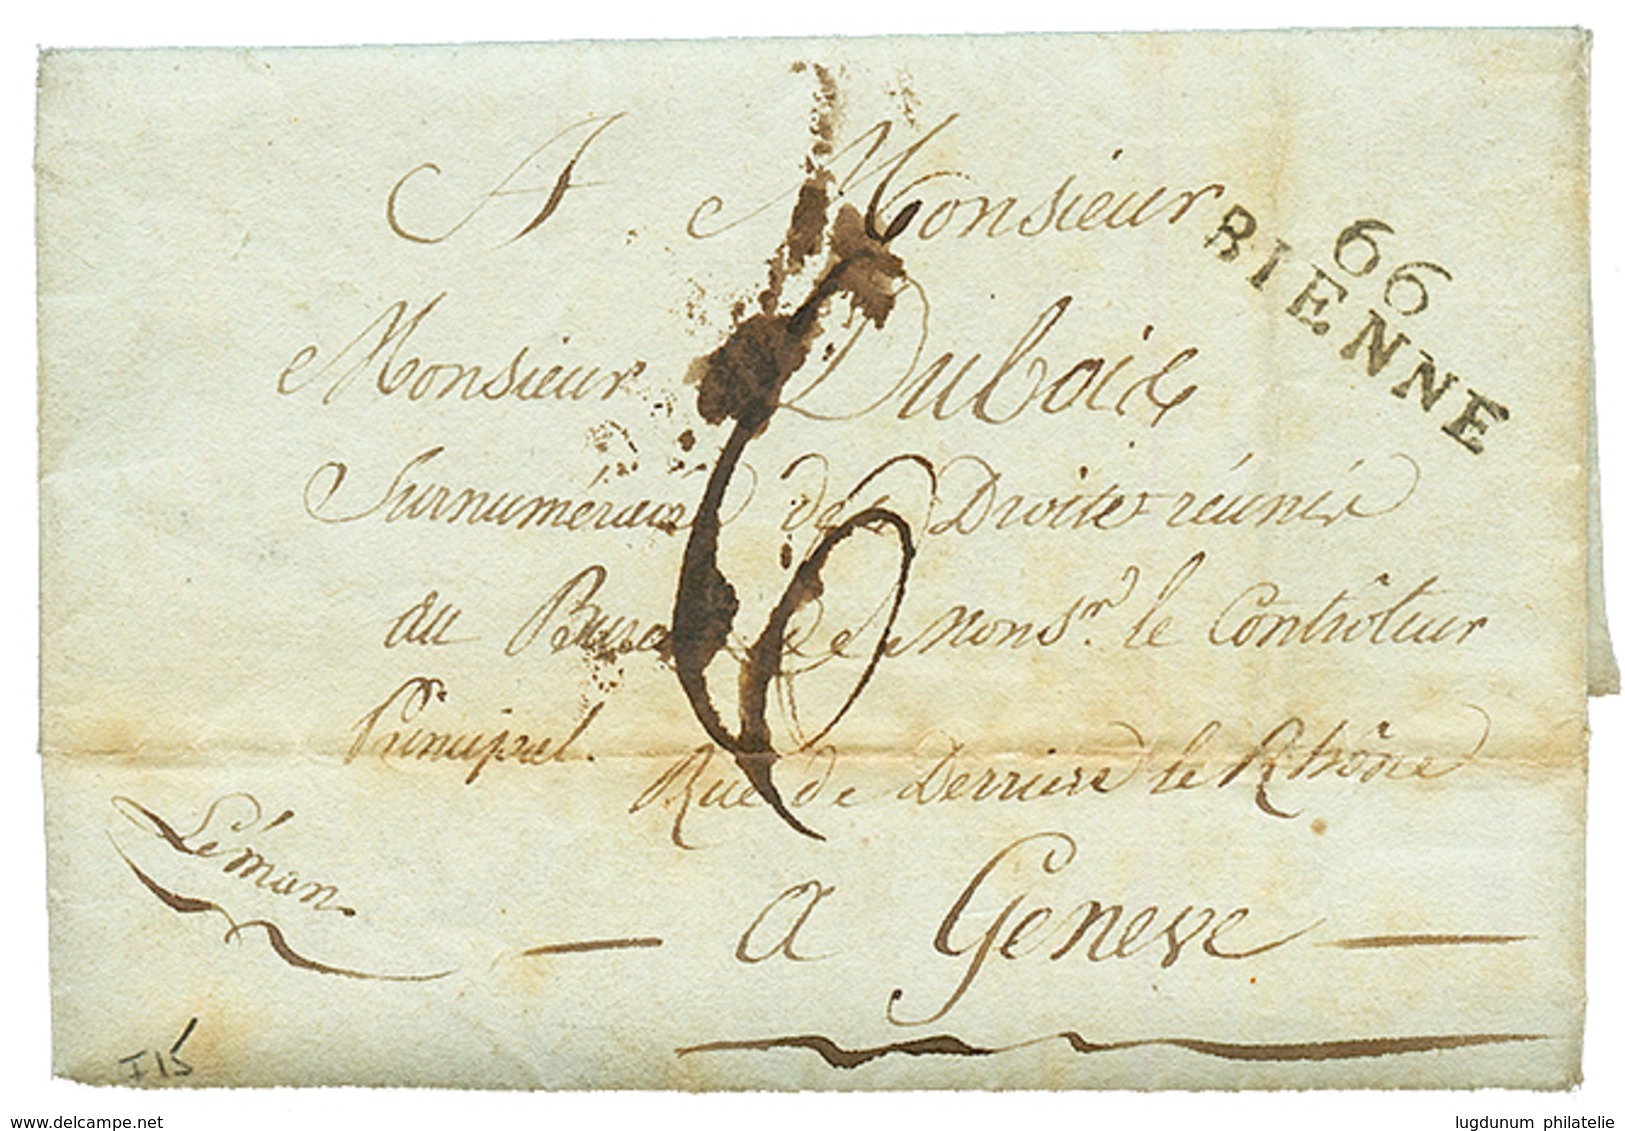 A Monsieur
66
BIENNE
Monsieur Dubois
Surnuméraire des Droits réunis
au Bureau de Monsr. le Contrôleur
Principal.
Rue de Derriere le Rhône
Léman.
a Geneve
6
I15
www.delcampe.net
lugdunum philatelie